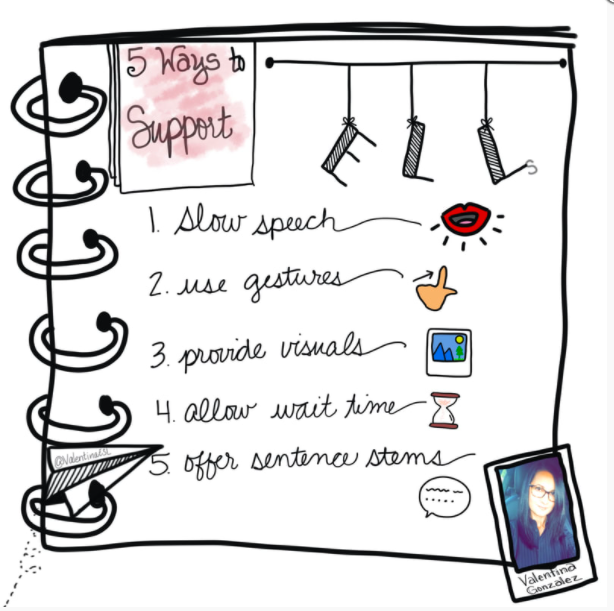 5 Ways to
Support
ELLs
1. Slow speech
2. use gestures
3. provide visuals
4. allow wait time
5. offer sentence stems
@ValentinaESL
Valentina
Gonzalez